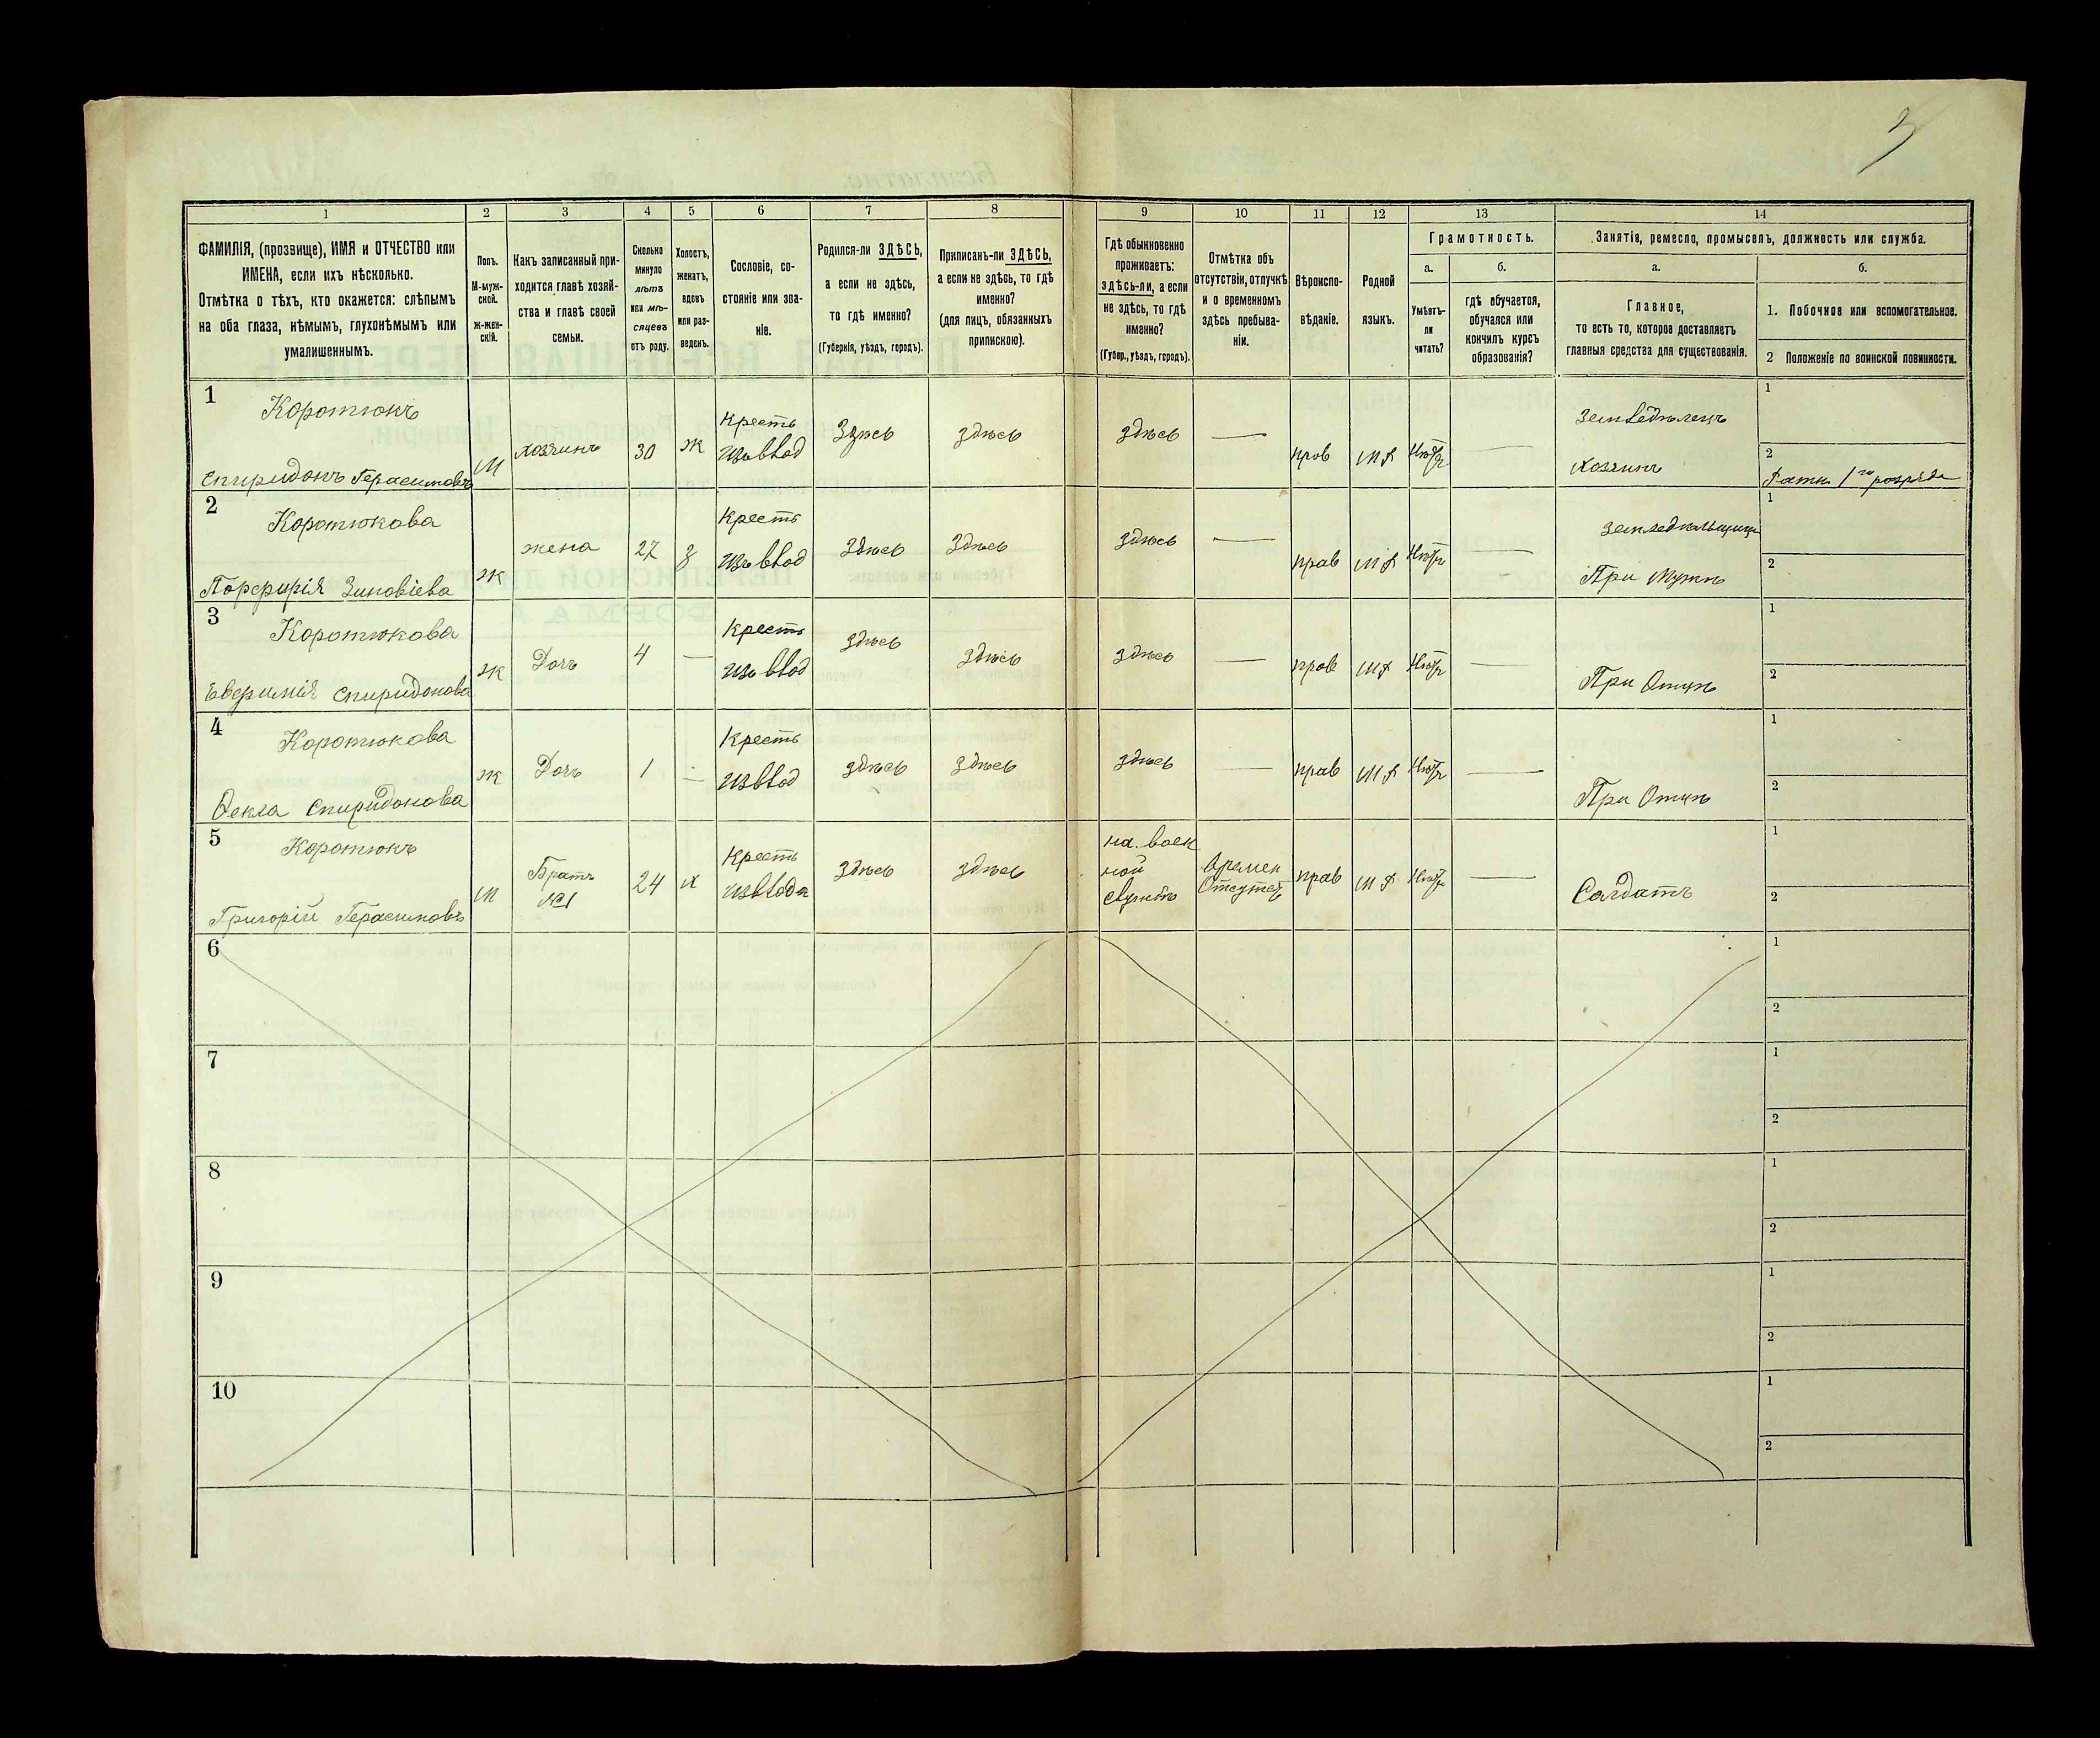 3
1
2
3
4
5
6
7
8
9
10
11
12
13
14
ФАМИЛІЯ, (прозвище), ИМЯ и ОТЧЕСТВО или
ИМЕНА, если ихъ нѣсколько.
Отмѣтка о тѣхъ, кто окажется: слѣпымъ
на оба глаза, нѣмымъ, глухонѣмымъ или
умалишеннымъ.
Полъ.
М-муж-
ской.
Ж-жен-
скій.
Какъ записанный при-
ходится главѣ хозяй-
ства и главѣ своей
семьи.
Сколько
минуло
лѣтъ
или мѣ-
сяцевъ
отъ роду.
Холостъ,
женатъ,
вдовъ
или раз-
веденъ.
Сословіе, со-
стояніе или зва-
ніе.
Родился-ли ЗДѢСЬ,
а если не здѣсь,
то гдѣ именно?
(Губернія, уѣздъ, городъ).
Приписанъ-ли ЗДѢСЬ,
а если не здѣсь, то гдѣ
именно?
(для лицъ, обязанныхъ
припискою).
Гдѣ обыкновенно
проживаетъ:
здѣсь-ли, а если
не здѣсь, то гдѣ
именно?
(Губер., уѣздъ, городъ).
Отмѣтка объ
отсутствіи, отлучкѣ
и о временномъ
здѣсь пребыва-
ніи.
Вѣроиспо-
вѣданіе.
Родной
языкъ.
Грамотность.
а.
Умѣетъ-
ли
читать?
б.
гдѣ обучается,
обучался или
кончилъ курсъ
образованія?
Занятія, ремесло, промыселъ, должность или служба.
а.
Главное,
то есть то, которое доставляетъ
главныя средства для существованія.
б.
1. Побочное или вспомогательное.
2 Положеніе по воинской повинности.
1
Коротюкъ
Спиридонъ Герасимовъ
М
хозяинъ
30
Ж
Кресть
изъ влад
Здѣсь
здѣсь
здѣсь
—
прав
МР
Нѣтъ
—
Земледѣлецъ
Хозяинъ
1
2
Ратн. 1го розряда
2
Коротюкова
Порфирія Зиновіева
Ж
жена
27
З
Кресть
изъ влад
Здѣсь
Здѣсь
здѣсь
—
прав
МР
Нѣтъ
—
При Мужѣ
1
2
3
Коротюкова
Евфимія Спиридонова
Ж
Дочь
4
—
Кресть
изъ влад
здѣсь
здѣсь
здѣсь
—
прав
МР
Нѣтъ
—
При Отцѣ
1
2
4
Коротюкова
Ѳекла Спиридонова
Ж
Дочь
1
—
Кресть
изъ влад
здѣсь
здѣсь
здѣсь
—
прав
МР
Нѣтъ
—
При Отцѣ
1
2
5
Коротюкъ
Григорій Герасимовъ
М
Братъ
№1
24
х
Кресть
здѣсь
здѣсь
на воен
ной
службѣ
Времен
прав
МР
Нѣтъ
—
Солдатъ
1
2
6
1
2
7
1
2
8
1
2
9
1
2
10
1
2